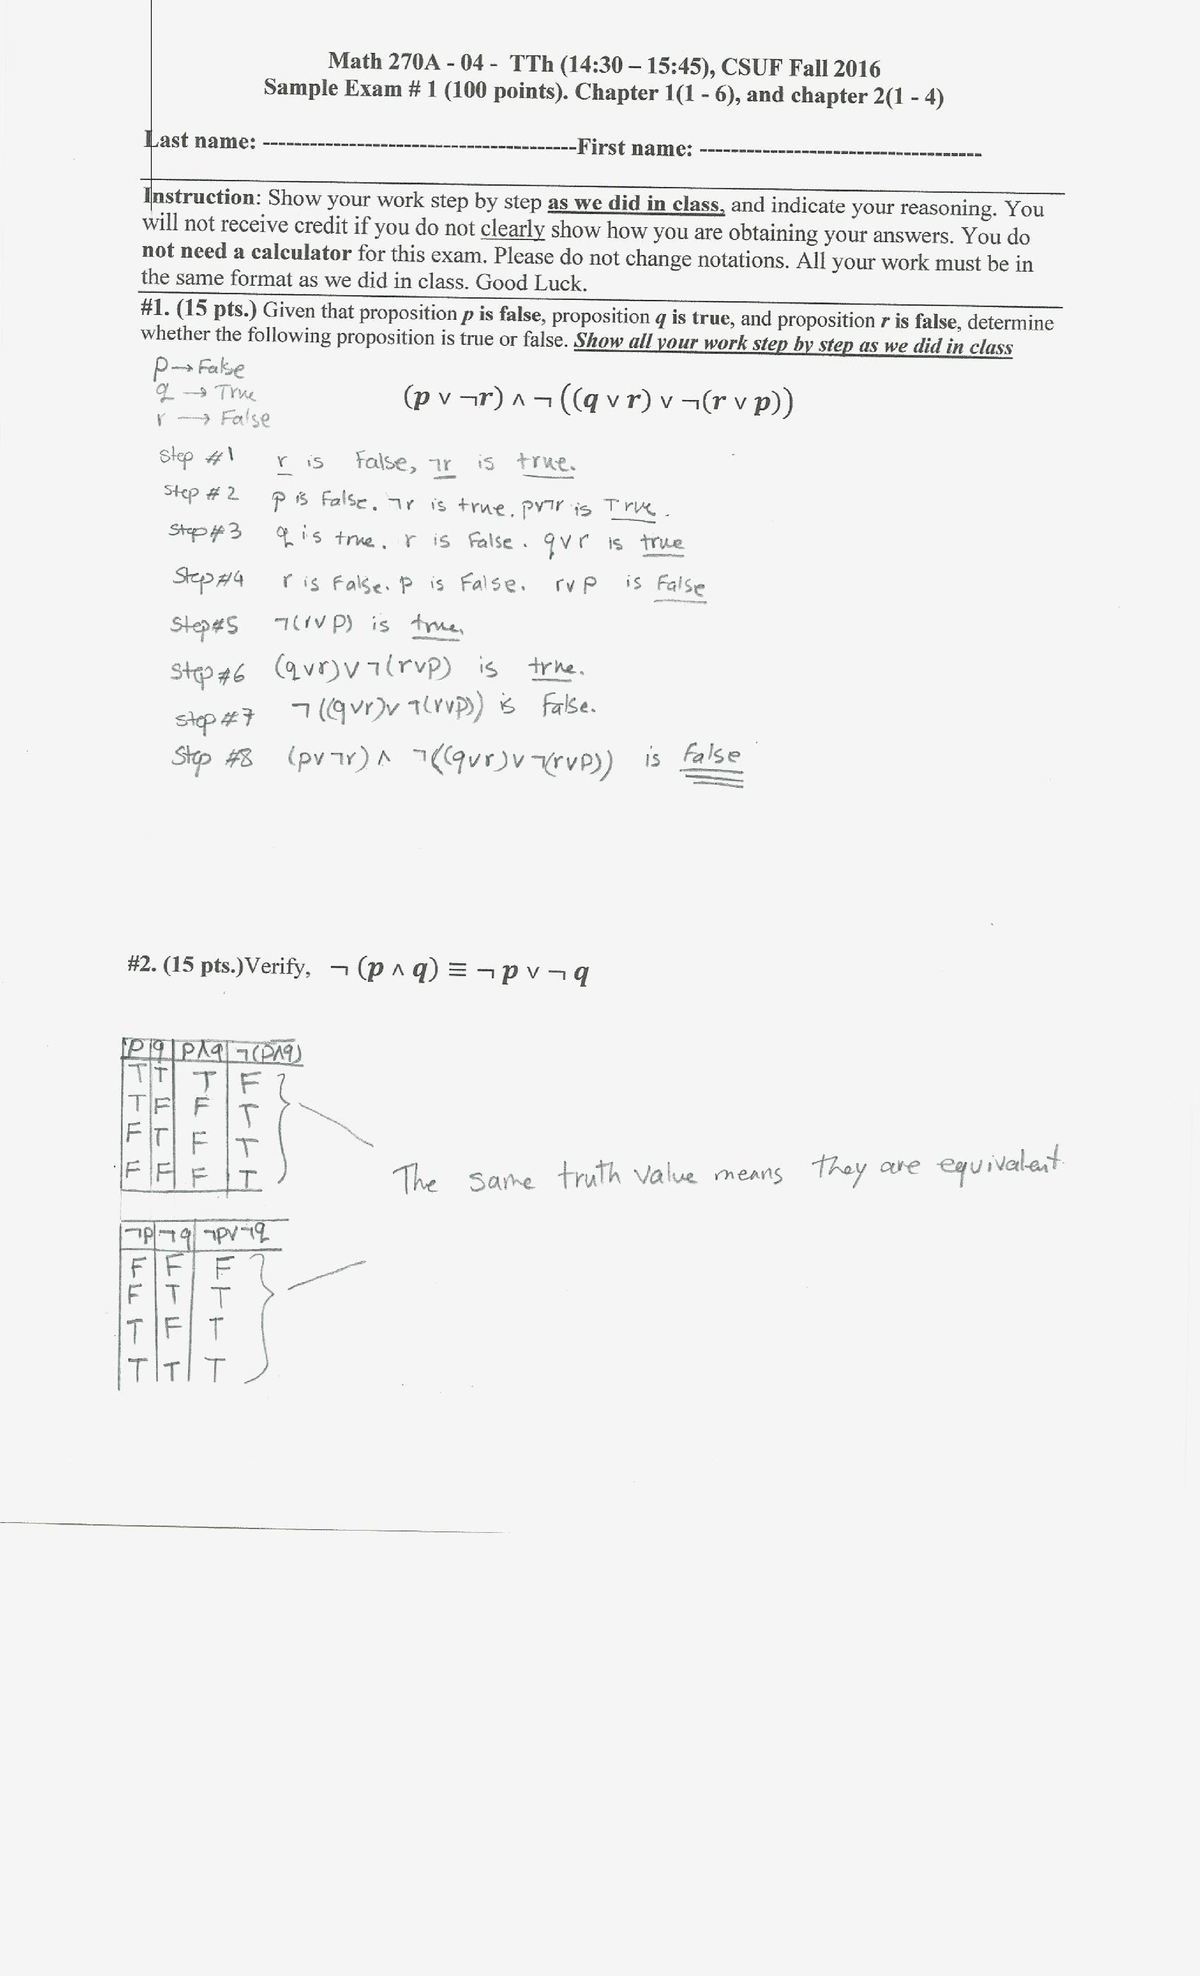 Math 270A - 04 - TTh (14:30 – 15:45), CSUF Fall 2016
Sample Exam # 1 (100 points). Chapter 1(1 - 6), and chapter 2(1 - 4)
Last name: ----------------------------------------First name: ------------------------------------
Instruction: Show your work step by step as we did in class, and indicate your reasoning. You
will not receive credit if you do not clearly show how you are obtaining your answers. You do
not need a calculator for this exam. Please do not change notations. All your work must be in
the same format as we did in class. Good Luck.
#1. (15 pts.) Given that proposition p is false, proposition q is true, and proposition r is false, determine
whether the following proposition is true or false. Show all your work step by step as we did in class
p → False
q → True
r → False
(p ∨ ¬r) ∧ ¬ ((q ∨ r) ∨ ¬(r ∨ p))
Step #1 r is False, ¬r is true.
Step #2 p is False. ¬r is true. p∨¬r is True.
Step #3 q is true. r is False. q∨r is true
Step #4 r is False. p is False. r∨p is False
Step #5 ¬(r∨p) is true.
Step #6 (q∨r)∨¬(r∨p) is true.
Step #7 ¬((q∨r)∨¬(r∨p)) is False.
Step #8 (p∨¬r) ∧ ¬((q∨r)∨¬(r∨p)) is False
#2. (15 pts.)Verify, ¬ (p ∧ q) ≡ ¬ p ∨ ¬ q
p q p∧q ¬(p∧q)
T T T F
T F F T
F T F T
F F F T
The same truth value means they are equivalent.
¬p ¬q ¬p∨¬q
F F F
F T T
T F T
T T T